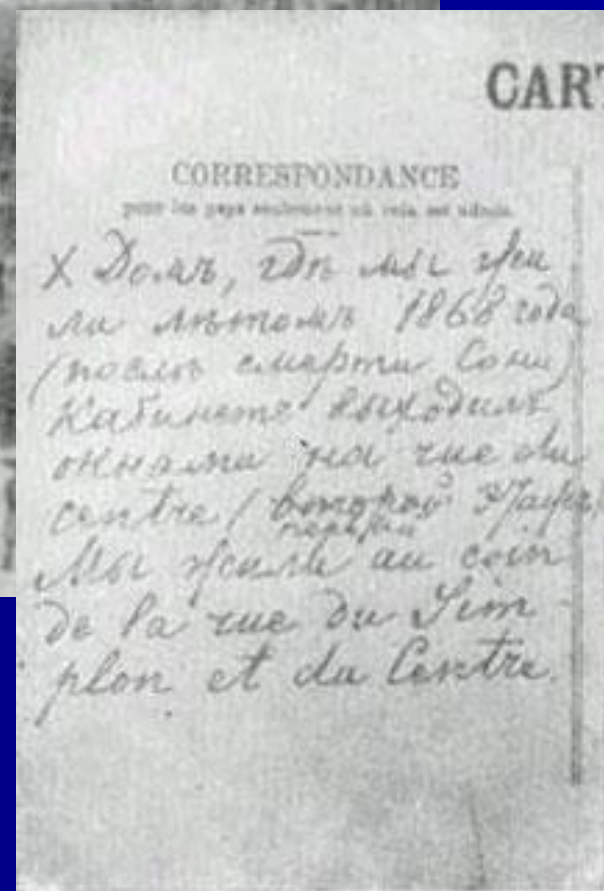 CART
CORRESPONDANCE
pour les pays seulement où cela est admis.
X Домъ, гдѣ мы жи
ли лѣтомъ 1868 года
(послѣ смерти Сони)
Кабинетъ выходилъ
окнами на rue du
centre (второй этажъ,
первый
Мы жили au coin
de la rue du Sim-
plon et du Centre.